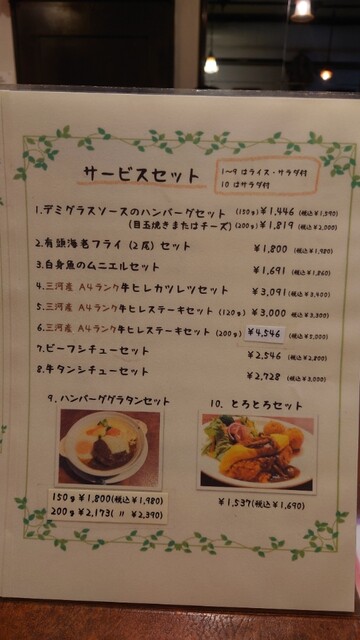 サービスセット
1〜9 はライス・サラダ付
10 はサラダ付
1.デミグラスソースのハンバーグセット (150g) ¥1,446 (税込¥1,590)
(目玉焼きまたはチーズ) (200g) ¥1,819 (税込¥2,000)
2.有頭海老フライ (2尾) セット ¥1,800 (税込¥1,980)
3.白身魚のムニエルセット ¥1,691 (税込¥1,860)
4.三河産 A4ランク牛ヒレカツレツセット ¥3,091 (税込¥3,400)
5.三河産 A4ランク牛ヒレステーキセット (120g) ¥3,000 (税込¥3,300)
6.三河産 A4ランク牛ヒレステーキセット (200g) ¥4,546 (税込¥5,000)
7.ビーフシチューセット ¥2,546 (税込¥2,800)
8.牛タンシチューセット ¥2,728 (税込¥3,000)
9. ハンバーググラタンセット
150g ¥1,800(税込¥1,980)
200g ¥2,173( 〃 ¥2,390)
10. とろとろセット
¥1,537(税込¥1,690)